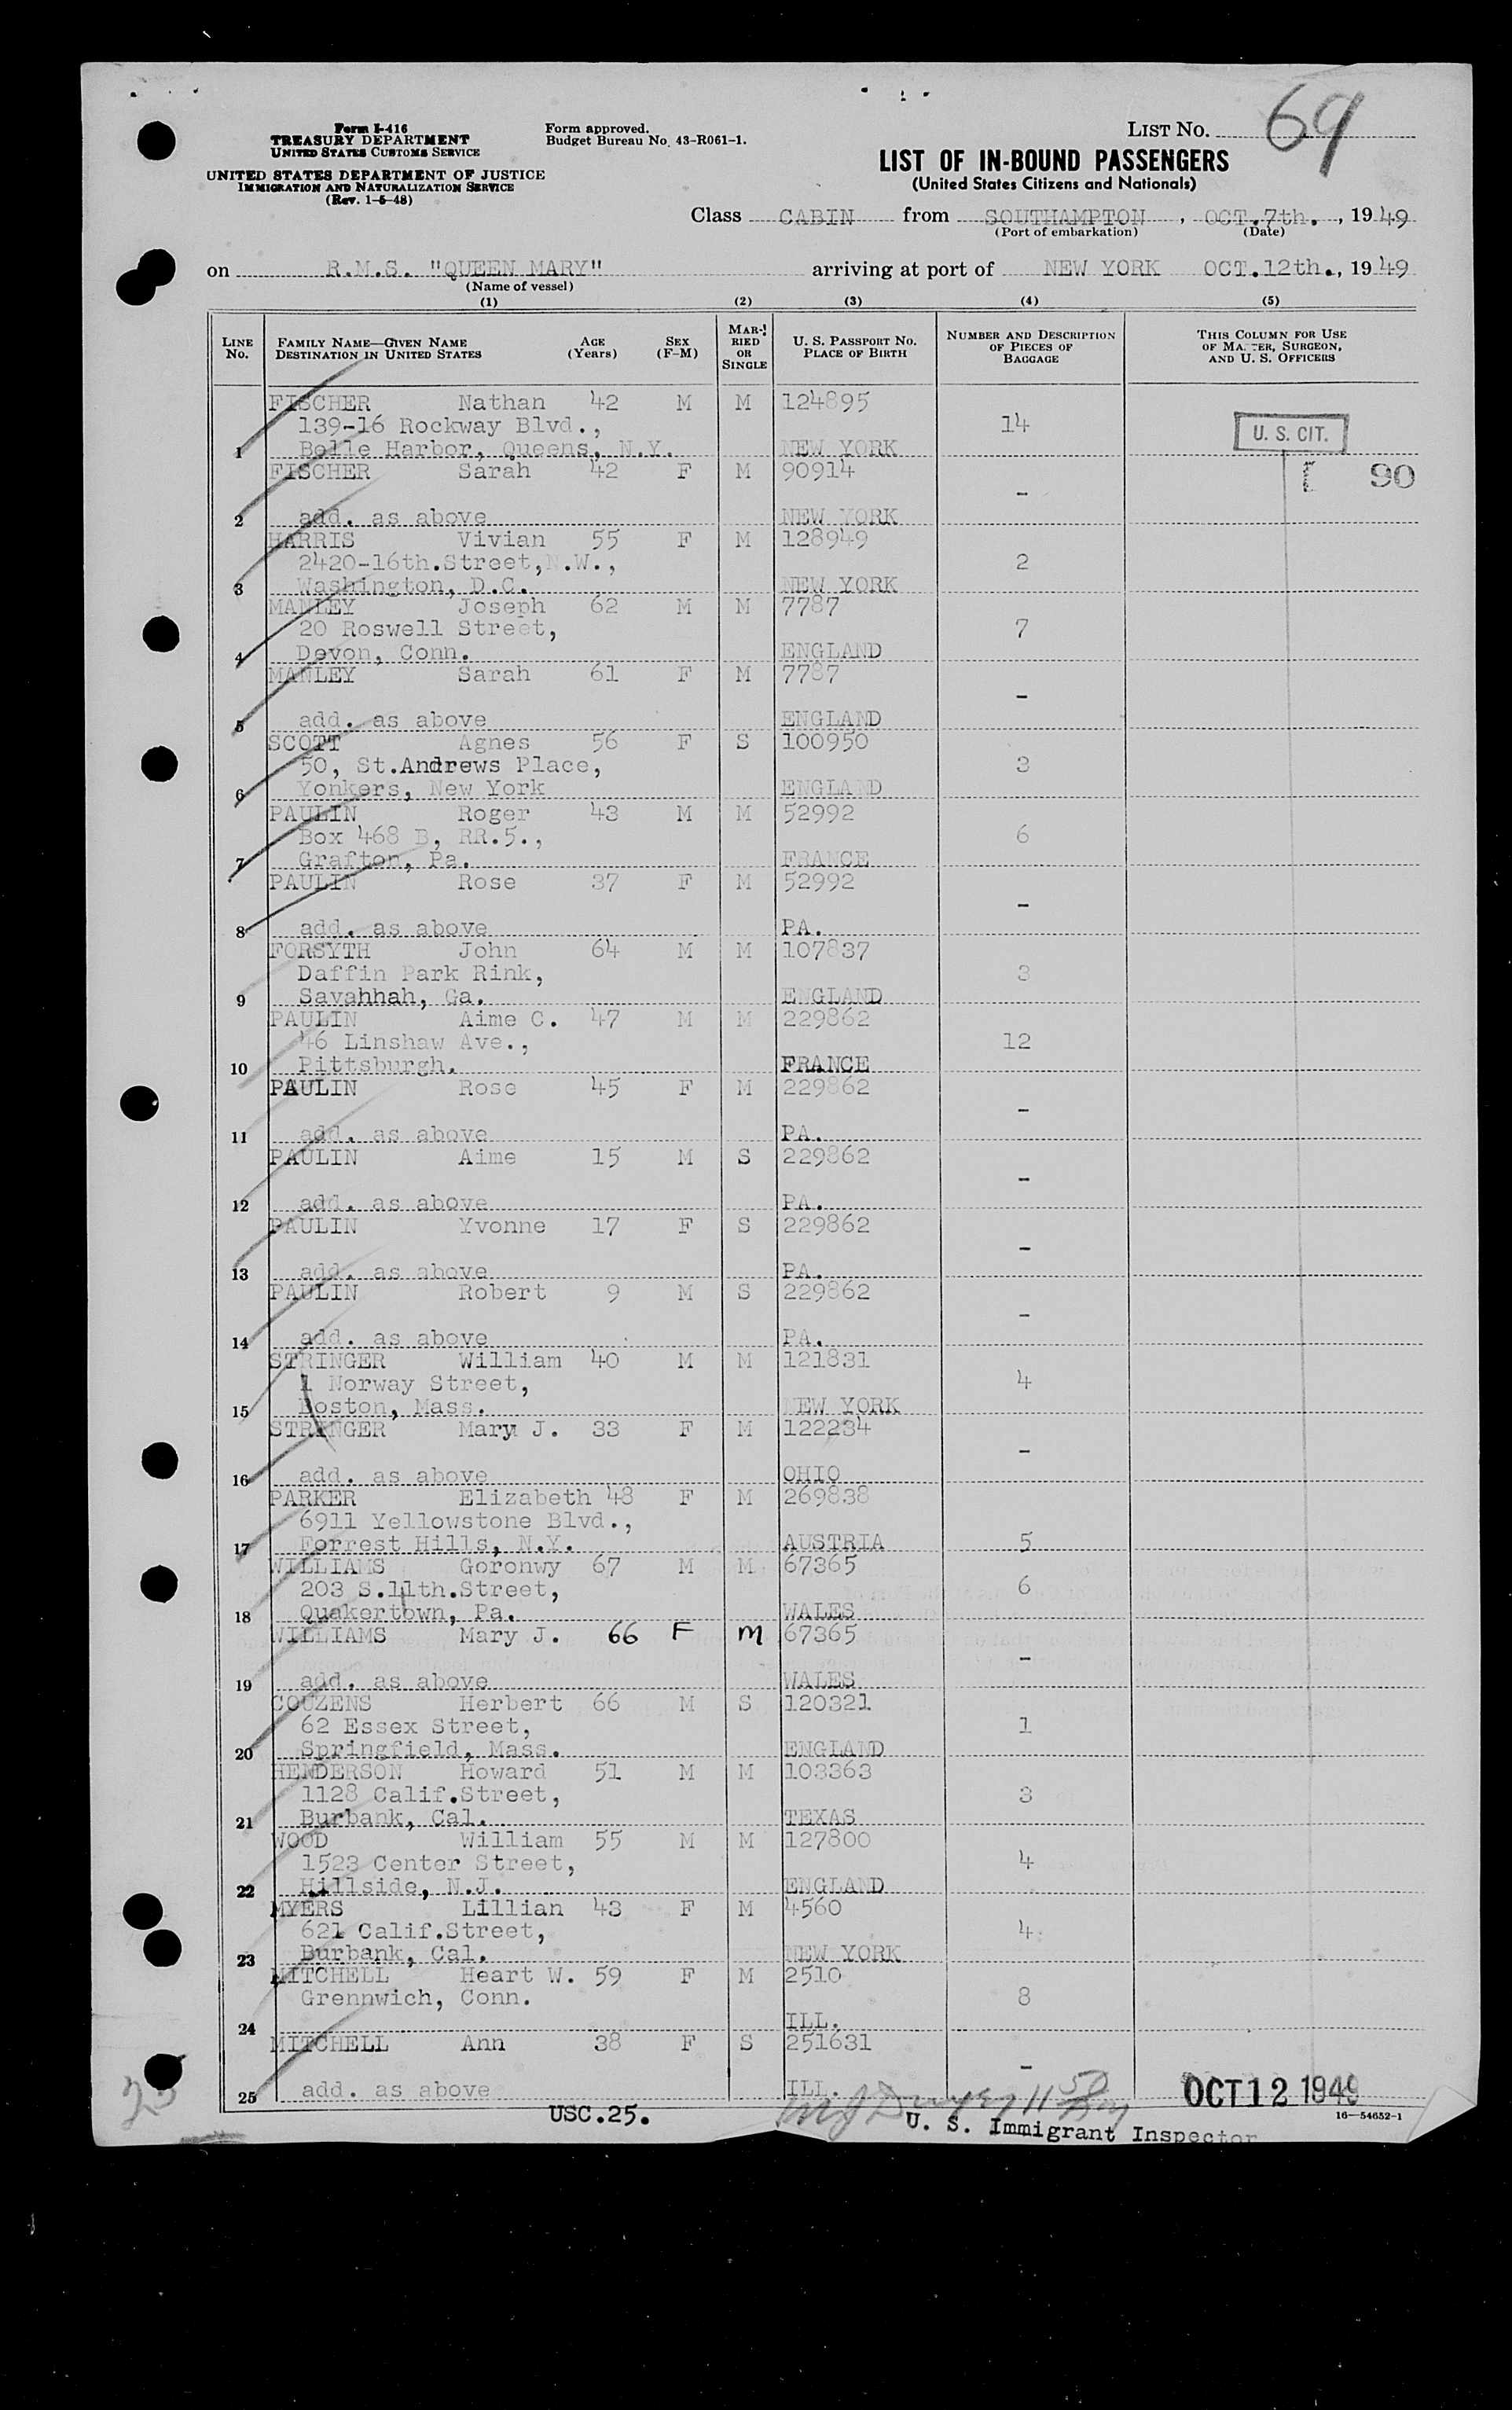 Form I-416
TREASURY DEPARTMENT
UNITED STATES CUSTOMS SERVICE
UNITED STATES DEPARTMENT OF JUSTICE
IMMIGRATION AND NATURALIZATION SERVICE
(Rev. 1-5-48)
Form approved.
Budget Bureau No. 43-R061-1.
LIST No. 69
LIST OF IN-BOUND PASSENGERS
(United States Citizens and Nationals)
Class CABIN from SOUTHAMPTON, OCT.7th., 1949
(Port of embarkation) (Date)
on R.M.S. "QUEEN MARY" arriving at port of NEW YORK OCT.12th., 1949
(Name of vessel)
(1) (2) (3) (4) (5)
LINE No. FAMILY NAME—GIVEN NAME DESTINATION IN UNITED STATES AGE (Years) SEX (F-M) MARRIED OR SINGLE U. S. PASSPORT No. PLACE OF BIRTH NUMBER AND DESCRIPTION OF PIECES OF BAGGAGE THIS COLUMN FOR USE OF MASTER, SURGEON, AND U. S. OFFICERS
FISCHER Nathan 42 M M 124895
139-16 Rockway Blvd., 14 U. S. CIT.
1 Belle Harbor, Queens, N.Y. NEW YORK
FISCHER Sarah 42 F M 90914 90
-
2 add. as above NEW YORK
HARRIS Vivian 55 F M 128949
2420-16th.Street,N.W., 2
3 Washington, D.C. NEW YORK
MANLEY Joseph 62 M M 7787
20 Roswell Street, 7
4 Devon, Conn. ENGLAND
MANLEY Sarah 61 F M 7787
-
5 add. as above ENGLAND
SCOTT Agnes 56 F S 100950
50, St.Andrews Place, 3
6 Yonkers, New York ENGLAND
PAULIN Roger 43 M M 52992
Box 468 B, RR.5., 6
7 Grafton, Pa. FRANCE
PAULIN Rose 37 F M 52992
-
8 add. as above PA.
FORSYTH John 64 M M 107837
Daffin Park Rink, 3
9 Savahhah, Ga. ENGLAND
PAULIN Aime C. 47 M M 229862
46 Linshaw Ave., 12
10 Pittsburgh. FRANCE
PAULIN Rose 45 F M 229862
-
11 add. as above PA.
PAULIN Aime 15 M S 229862
-
12 add. as above PA.
PAULIN Yvonne 17 F S 229862
-
13 add. as above PA.
PAULIN Robert 9 M S 229862
-
14 add. as above PA.
STRINGER William 40 M M 121831
1 Norway Street, 4
15 Boston, Mass. NEW YORK
STRINGER Mary J. 33 F M 122234
-
16 add. as above OHIO
PARKER Elizabeth 48 F M 269838
6911 Yellowstone Blvd.,
17 Forrest Hills, N.Y. AUSTRIA 5
WILLIAMS Goronwy 67 M M 67365
203 S.11th.Street, 6
18 Quakertown, Pa. WALES
WILLIAMS Mary J. 66 F M 67365
-
19 add. as above WALES
COUZENS Herbert 66 M S 120321
62 Essex Street, 1
20 Springfield, Mass. ENGLAND
HENDERSON Howard 51 M M 103363
1128 Calif.Street, 3
21 Burbank, Cal. TEXAS
WOOD William 55 M M 127800
1523 Center Street, 4
22 Hillside, N.J. ENGLAND
MYERS Lillian 43 F M 4560
621 Calif.Street, 4
23 Burbank, Cal. NEW YORK
MITCHELL Heart W. 59 F M 2510
Grennwich, Conn. 8
24 ILL.
MITCHELL Ann 38 F S 251631
-
25 add. as above ILL.
OCT 12 1949
USC.25.
U. S. Immigrant Inspector
16—54652-1
25